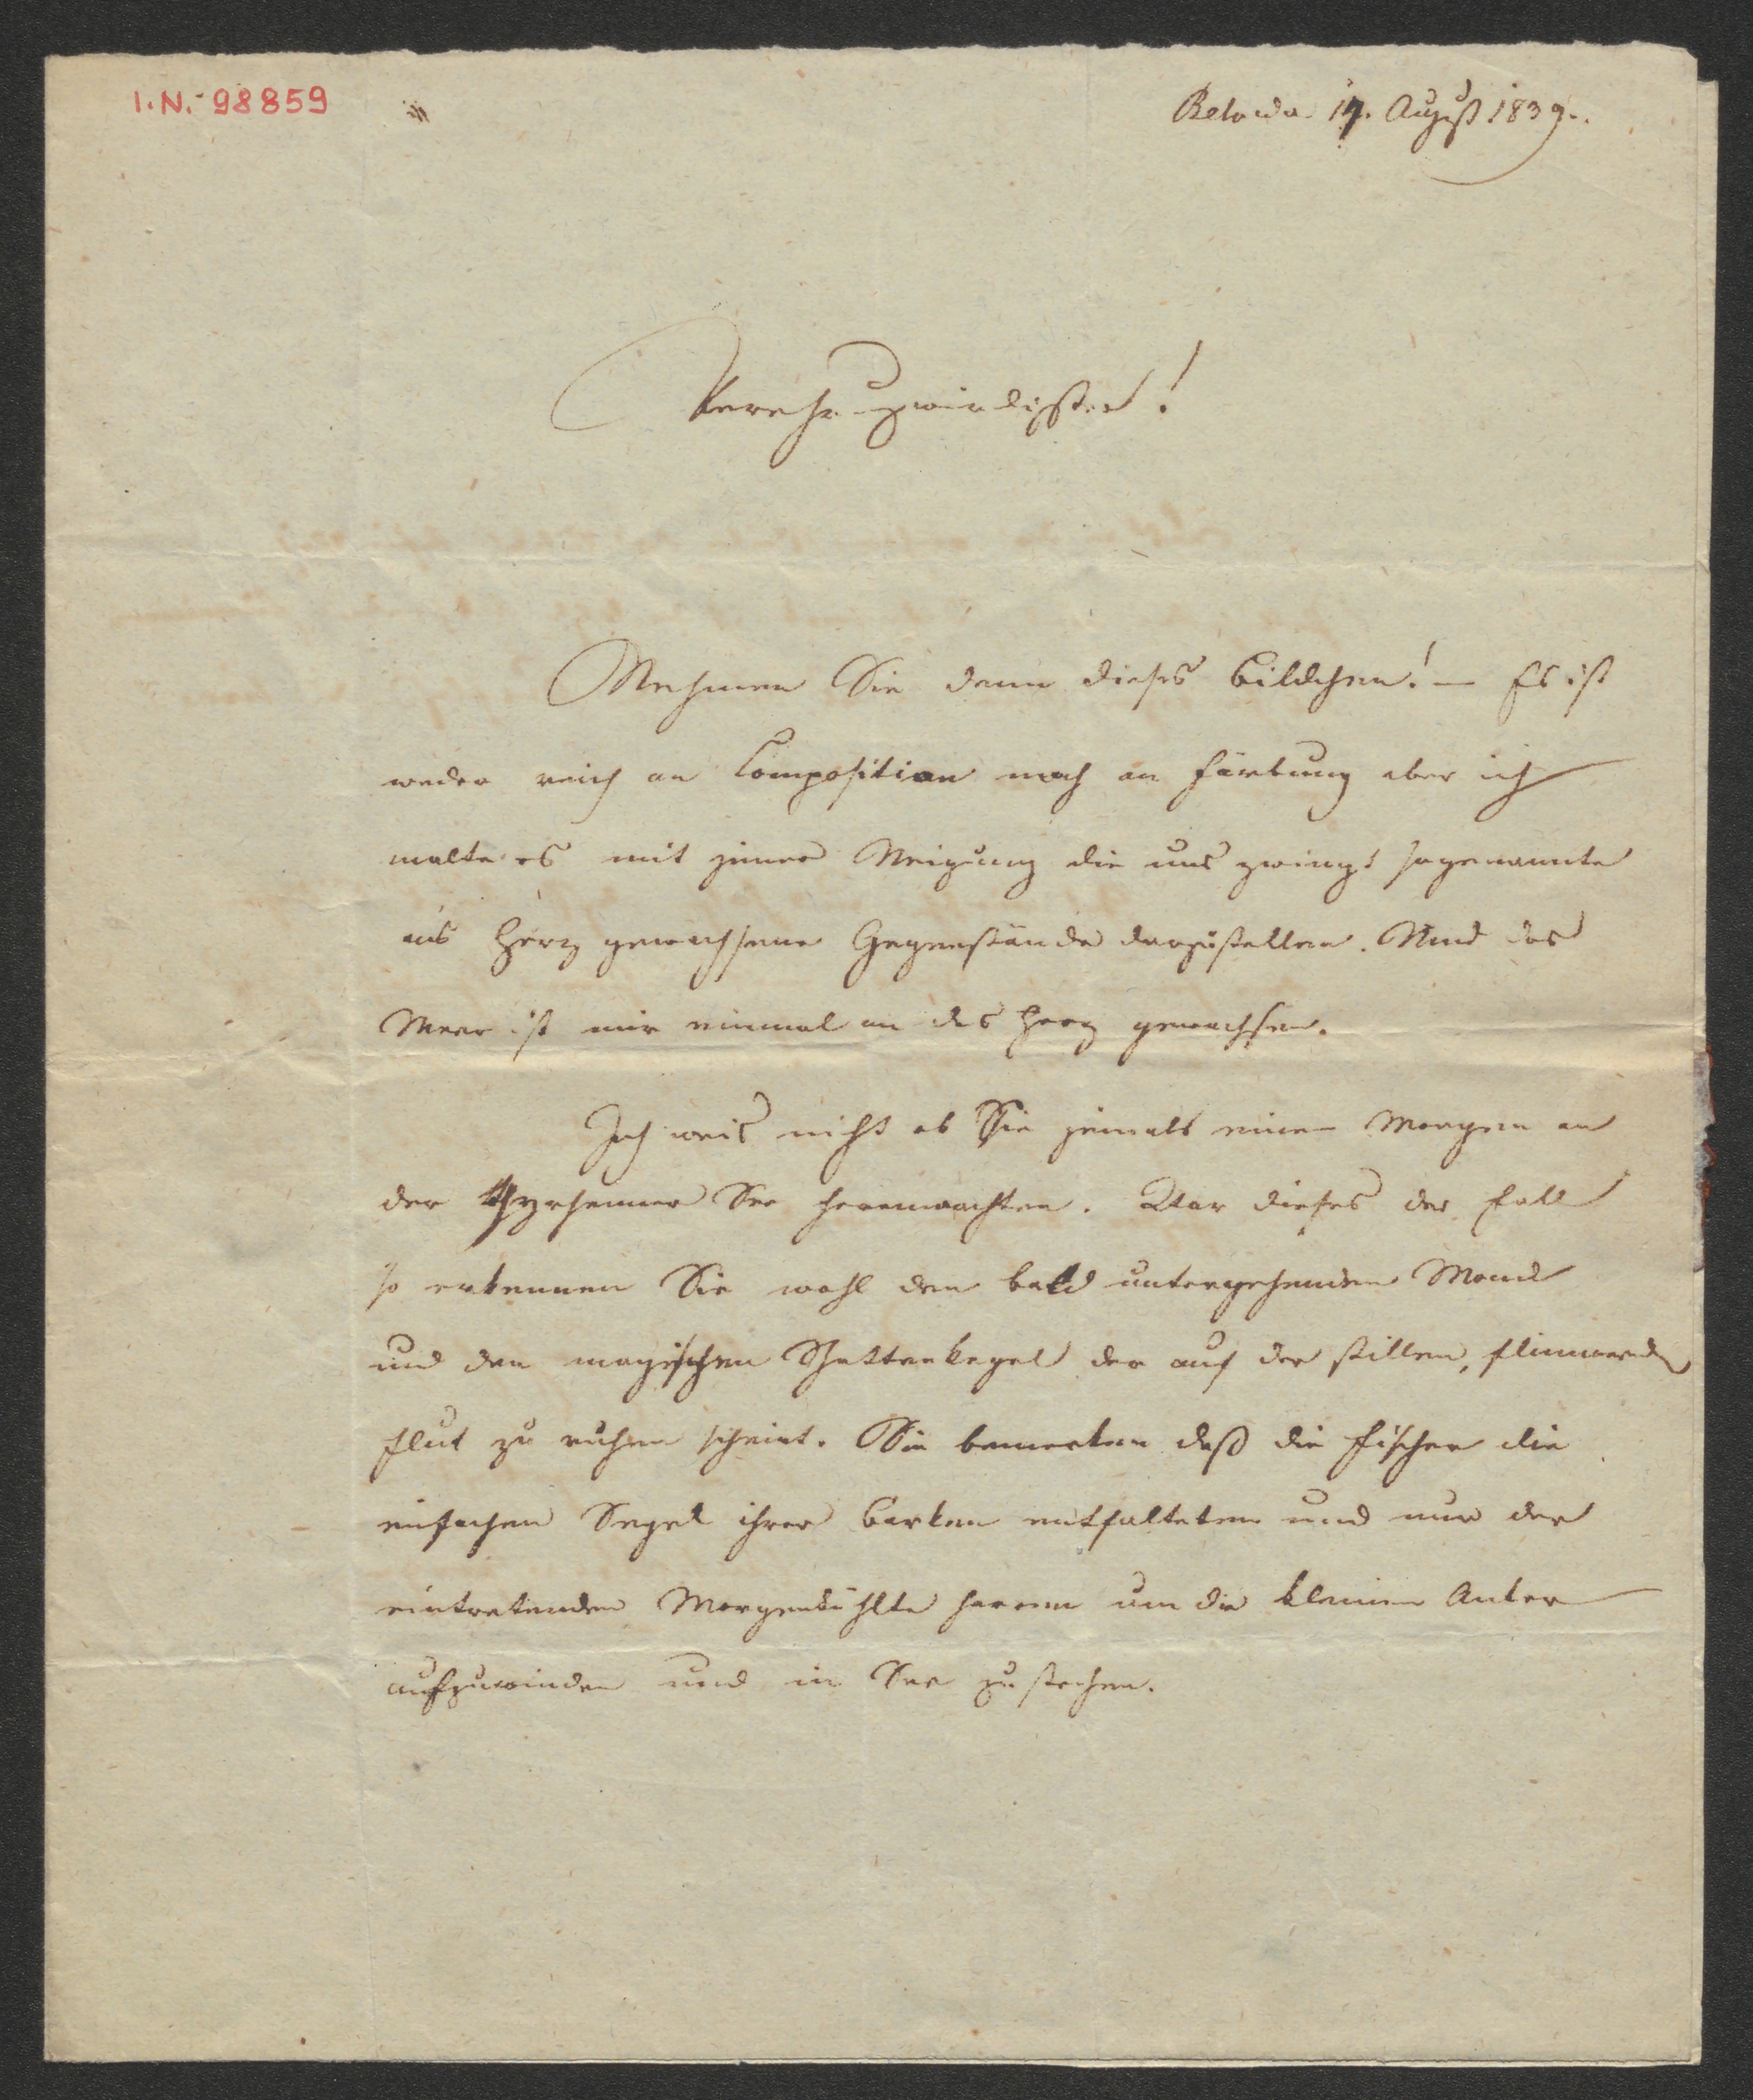 I.N. 98859
August 1839.
Verehrungswürdigster!
Nehmen Sie denn dieses Bildchen! – Es ist
weder reich an Composition noch an Färbung aber ich
malte es mit jener Neigung die uns zwingt sogenannte
ans Herz gewachsene Gegenstände darzustellen. Und das
Meer ist mir einmal an das Herz gewachsen.
Ich weis nicht ob Sie jemals einen Morgen an
der Thyrhener See heranwachten. War dieses der Fall
so erkennen Sie wohl den bald untergehenden Mond
und den magischen Schattenkegel der auf der stillen, flimmernden
Flut zu ruhen scheint. Sie bemerken daß die Fischer die
einfachen Segel ihrer Barken entfalteten und nur der
eintretenden Morgenkühlte harren um die kleinen Anker
aufzuwinden und in See zu stechen.